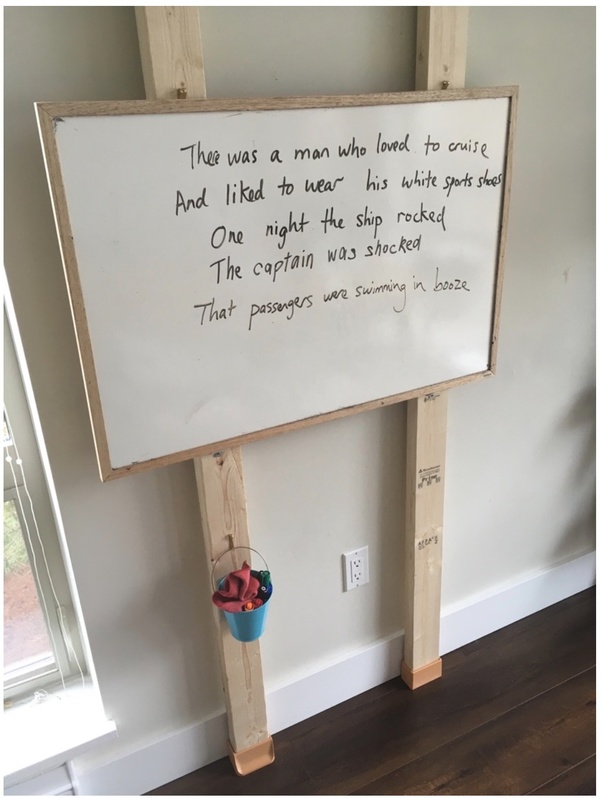 There was a man who loved to cruise
And liked to wear his white sports shoes
One night the ship rocked
The captain was shocked
That passengers were swimming in booze